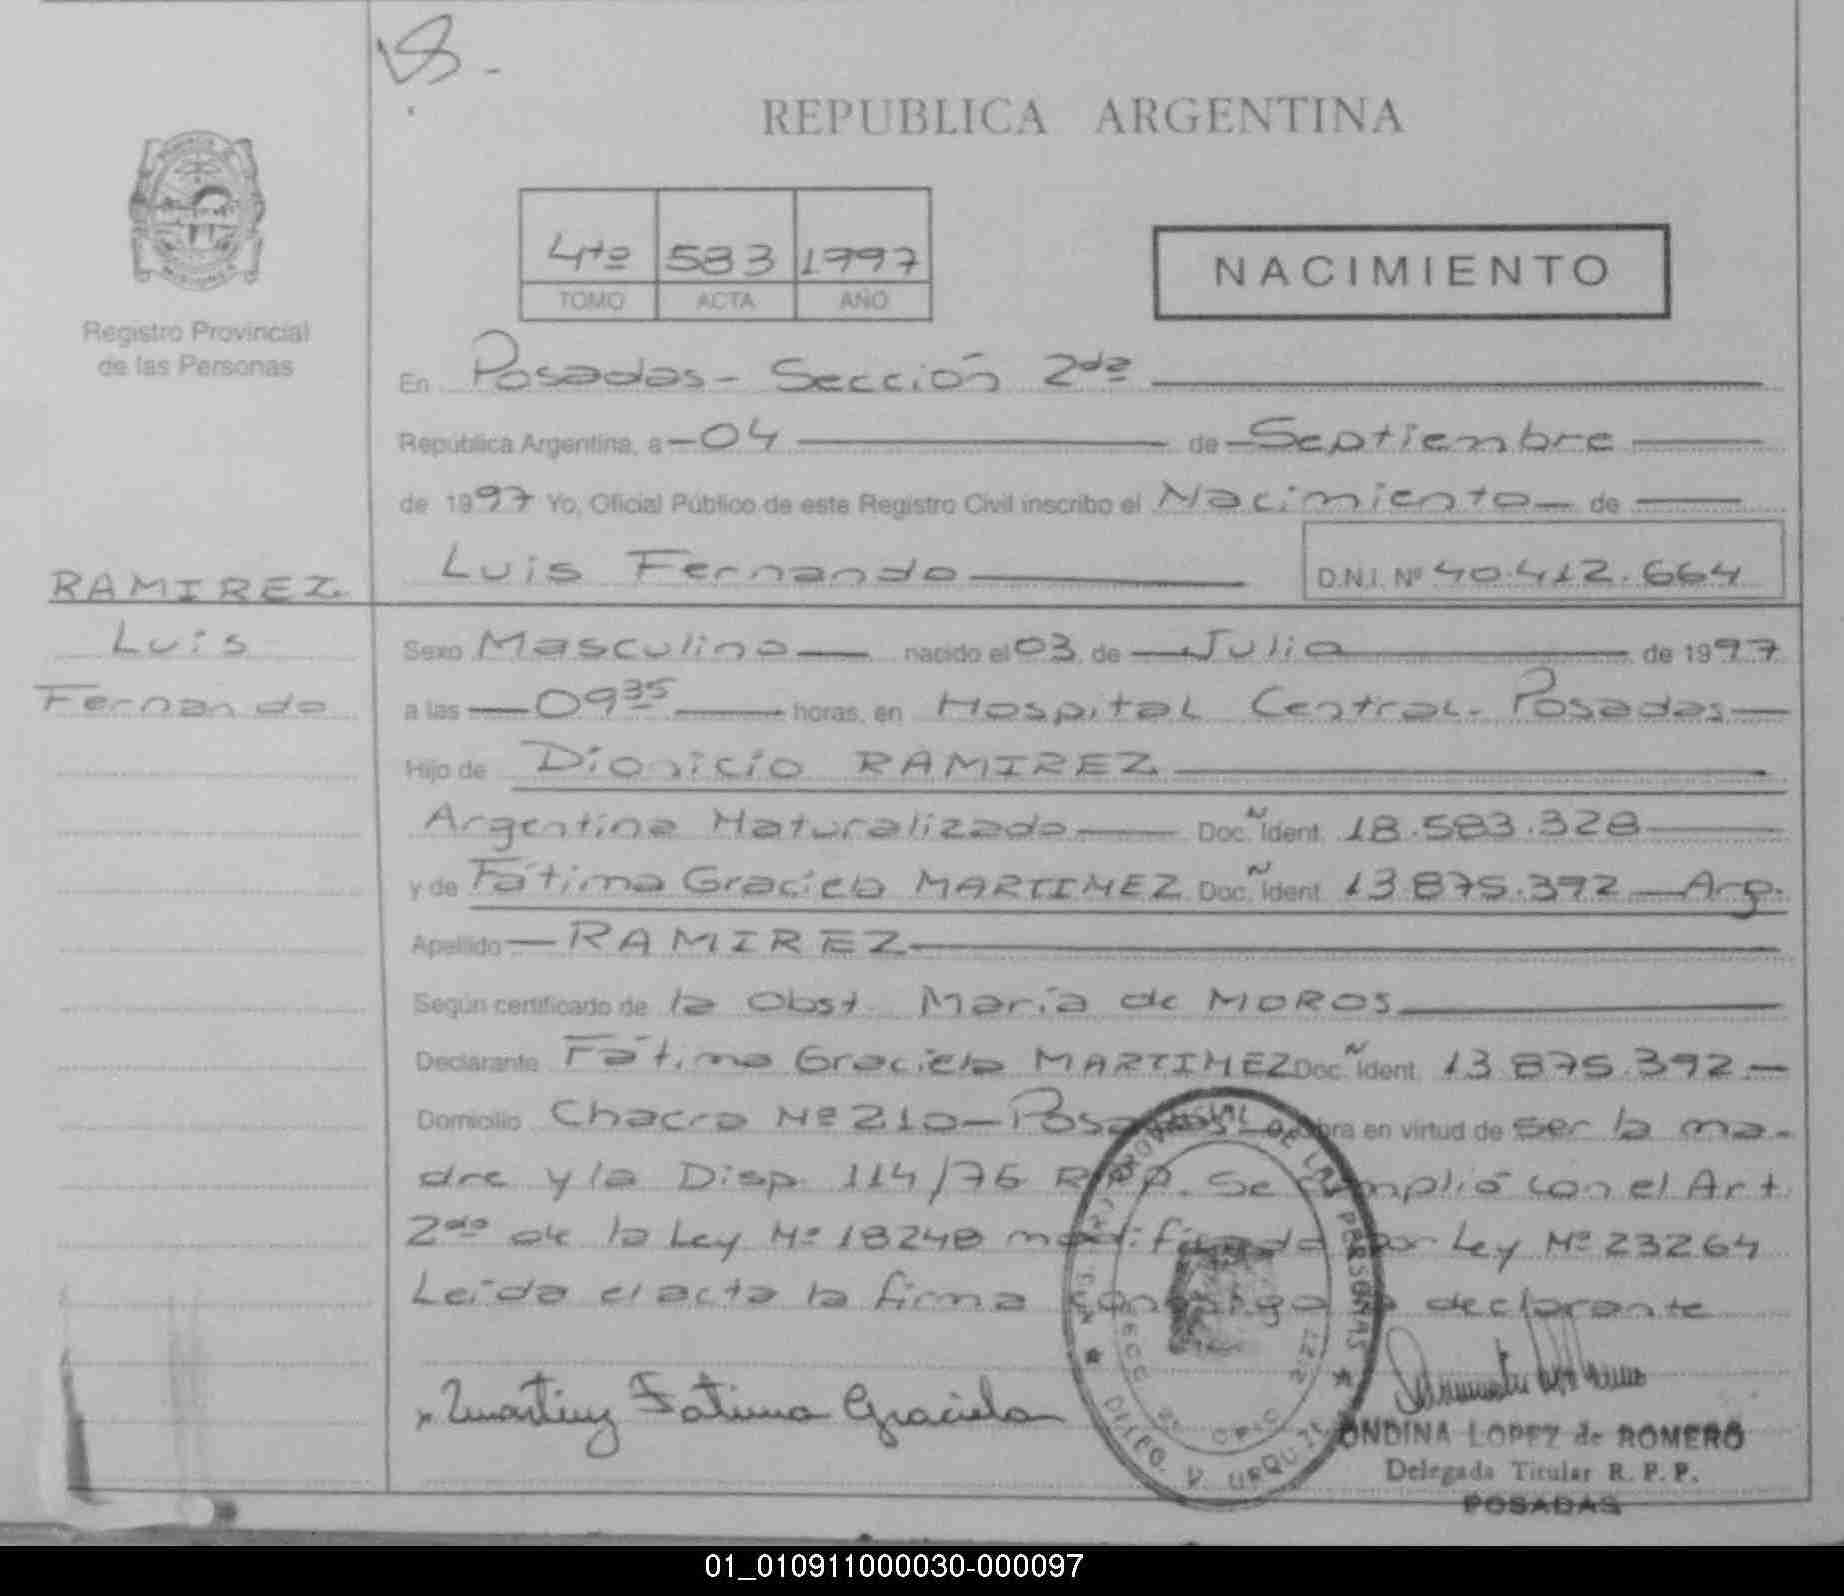 REPUBLICA ARGENTINA
4to 583 1997
TOMO ACTA AÑO
NACIMIENTO
Registro Provincial
de las Personas
En Posadas - Sección 2da
República Argentina, a 04 de Septiembre
de 1997 Yo, Oficial Público de este Registro Civil inscribo el Nacimiento de
Luis Fernando D.N.I. Nº 40.412.664
RAMIREZ
Luis
Fernando
Sexo Masculino nacido el 03 de Julio de 1997
a las 09 35 horas, en Hospital Central - Posadas
Hijo de Dionicio RAMIREZ
Argentino Naturalizado Doc. Ident. 18.583.328
y de Fátima Graciela MARTINEZ Doc. Ident. 13.875.392 Arg.
Apellido RAMIREZ
Según certificado de la Obst. María de MOROS
Declarante Fátima Graciela MARTINEZ Doc. Ident. 13.875.392
Domicilio Chacra Nº 210 - Posadas obra en virtud de ser la ma-
dre y la Disp. 114/76 R.P.P. Se cumplió con el Art.
2do de la Ley Nº 18248 modificada por Ley Nº 23264
Leída el acta la firma conmigo la declarante
Martinez Fatima Graciela
PROVINCIAL DE LAS PERSONAS
ONDINA LOPEZ de ROMERO
Delegada Titular R. P. P.
POSADAS
01_010911000030-000097